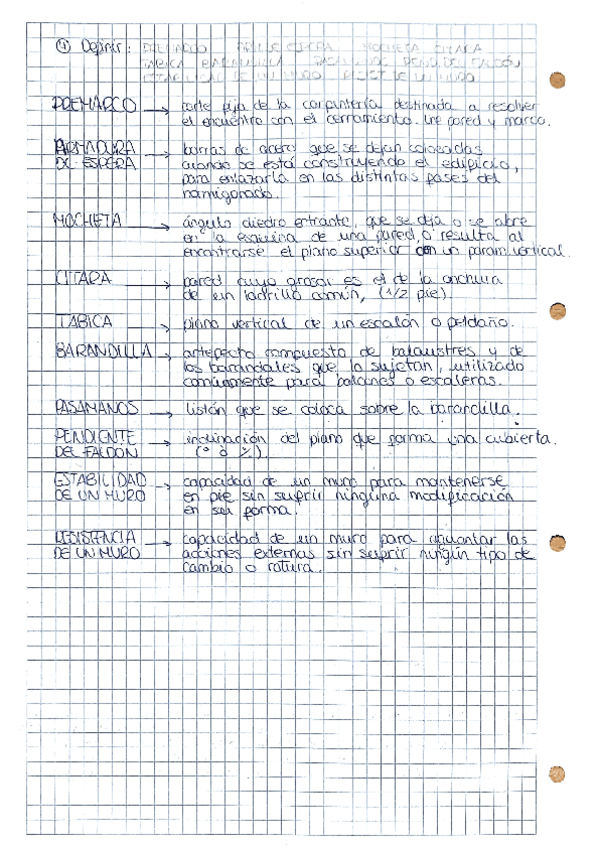 ④ Definir: PREMARCO ARM. DE ESPERA MOCHETA CITARA
TABICA BARANDILLA PASAMANOS PEND. DEL FALDÓN
ESTABILIDAD DE UN MURO RESIST. DE UN MURO
PREMARCO → parte fija de la carpintería destinada a resolver
el encuentro con el cerramiento. Une pared y marco.
ARMADURA DE ESPERA → barras de acero que se dejan colocadas
cuando se está construyendo el edificio,
para enlazarla en las distintas fases del
hormigonado.
MOCHETA → ángulo diedro entrante, que se deja o se abre
en la esquina de una pared, o resulta al
encontrarse el plano superior con un param. vertical.
CITARA → pared cuyo grosor es el de la anchura
de un ladrillo común, (1/2 pie)
TABICA → plano vertical de un escalón o peldaño.
BARANDILLA → antepecho compuesto de balaustres y de
los barandales que lo sujetan, utilizado
comúnmente para balcones o escaleras.
PASAMANOS → listón que se coloca sobre la barandilla.
PENDIENTE DEL FALDÓN → inclinación del plano que forma una cubierta.
(° ò %).
ESTABILIDAD DE UN MURO → capacidad de un muro para mantenerse
en pie sin sufrir ninguna modificación
en su forma.
RESISTENCIA DE UN MURO → capacidad de un muro para aguantar las
acciones externas sin sufrir ningún tipo de
cambio o rotura.